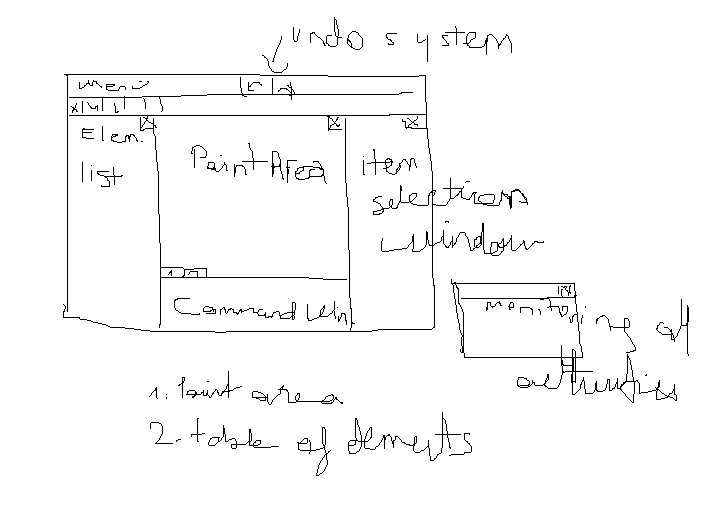 undo system
Menu
Elem.
list
Paint Area
item
selection
window
Command Win
Monitoring of
activities
1. Paint area
2. table of elements